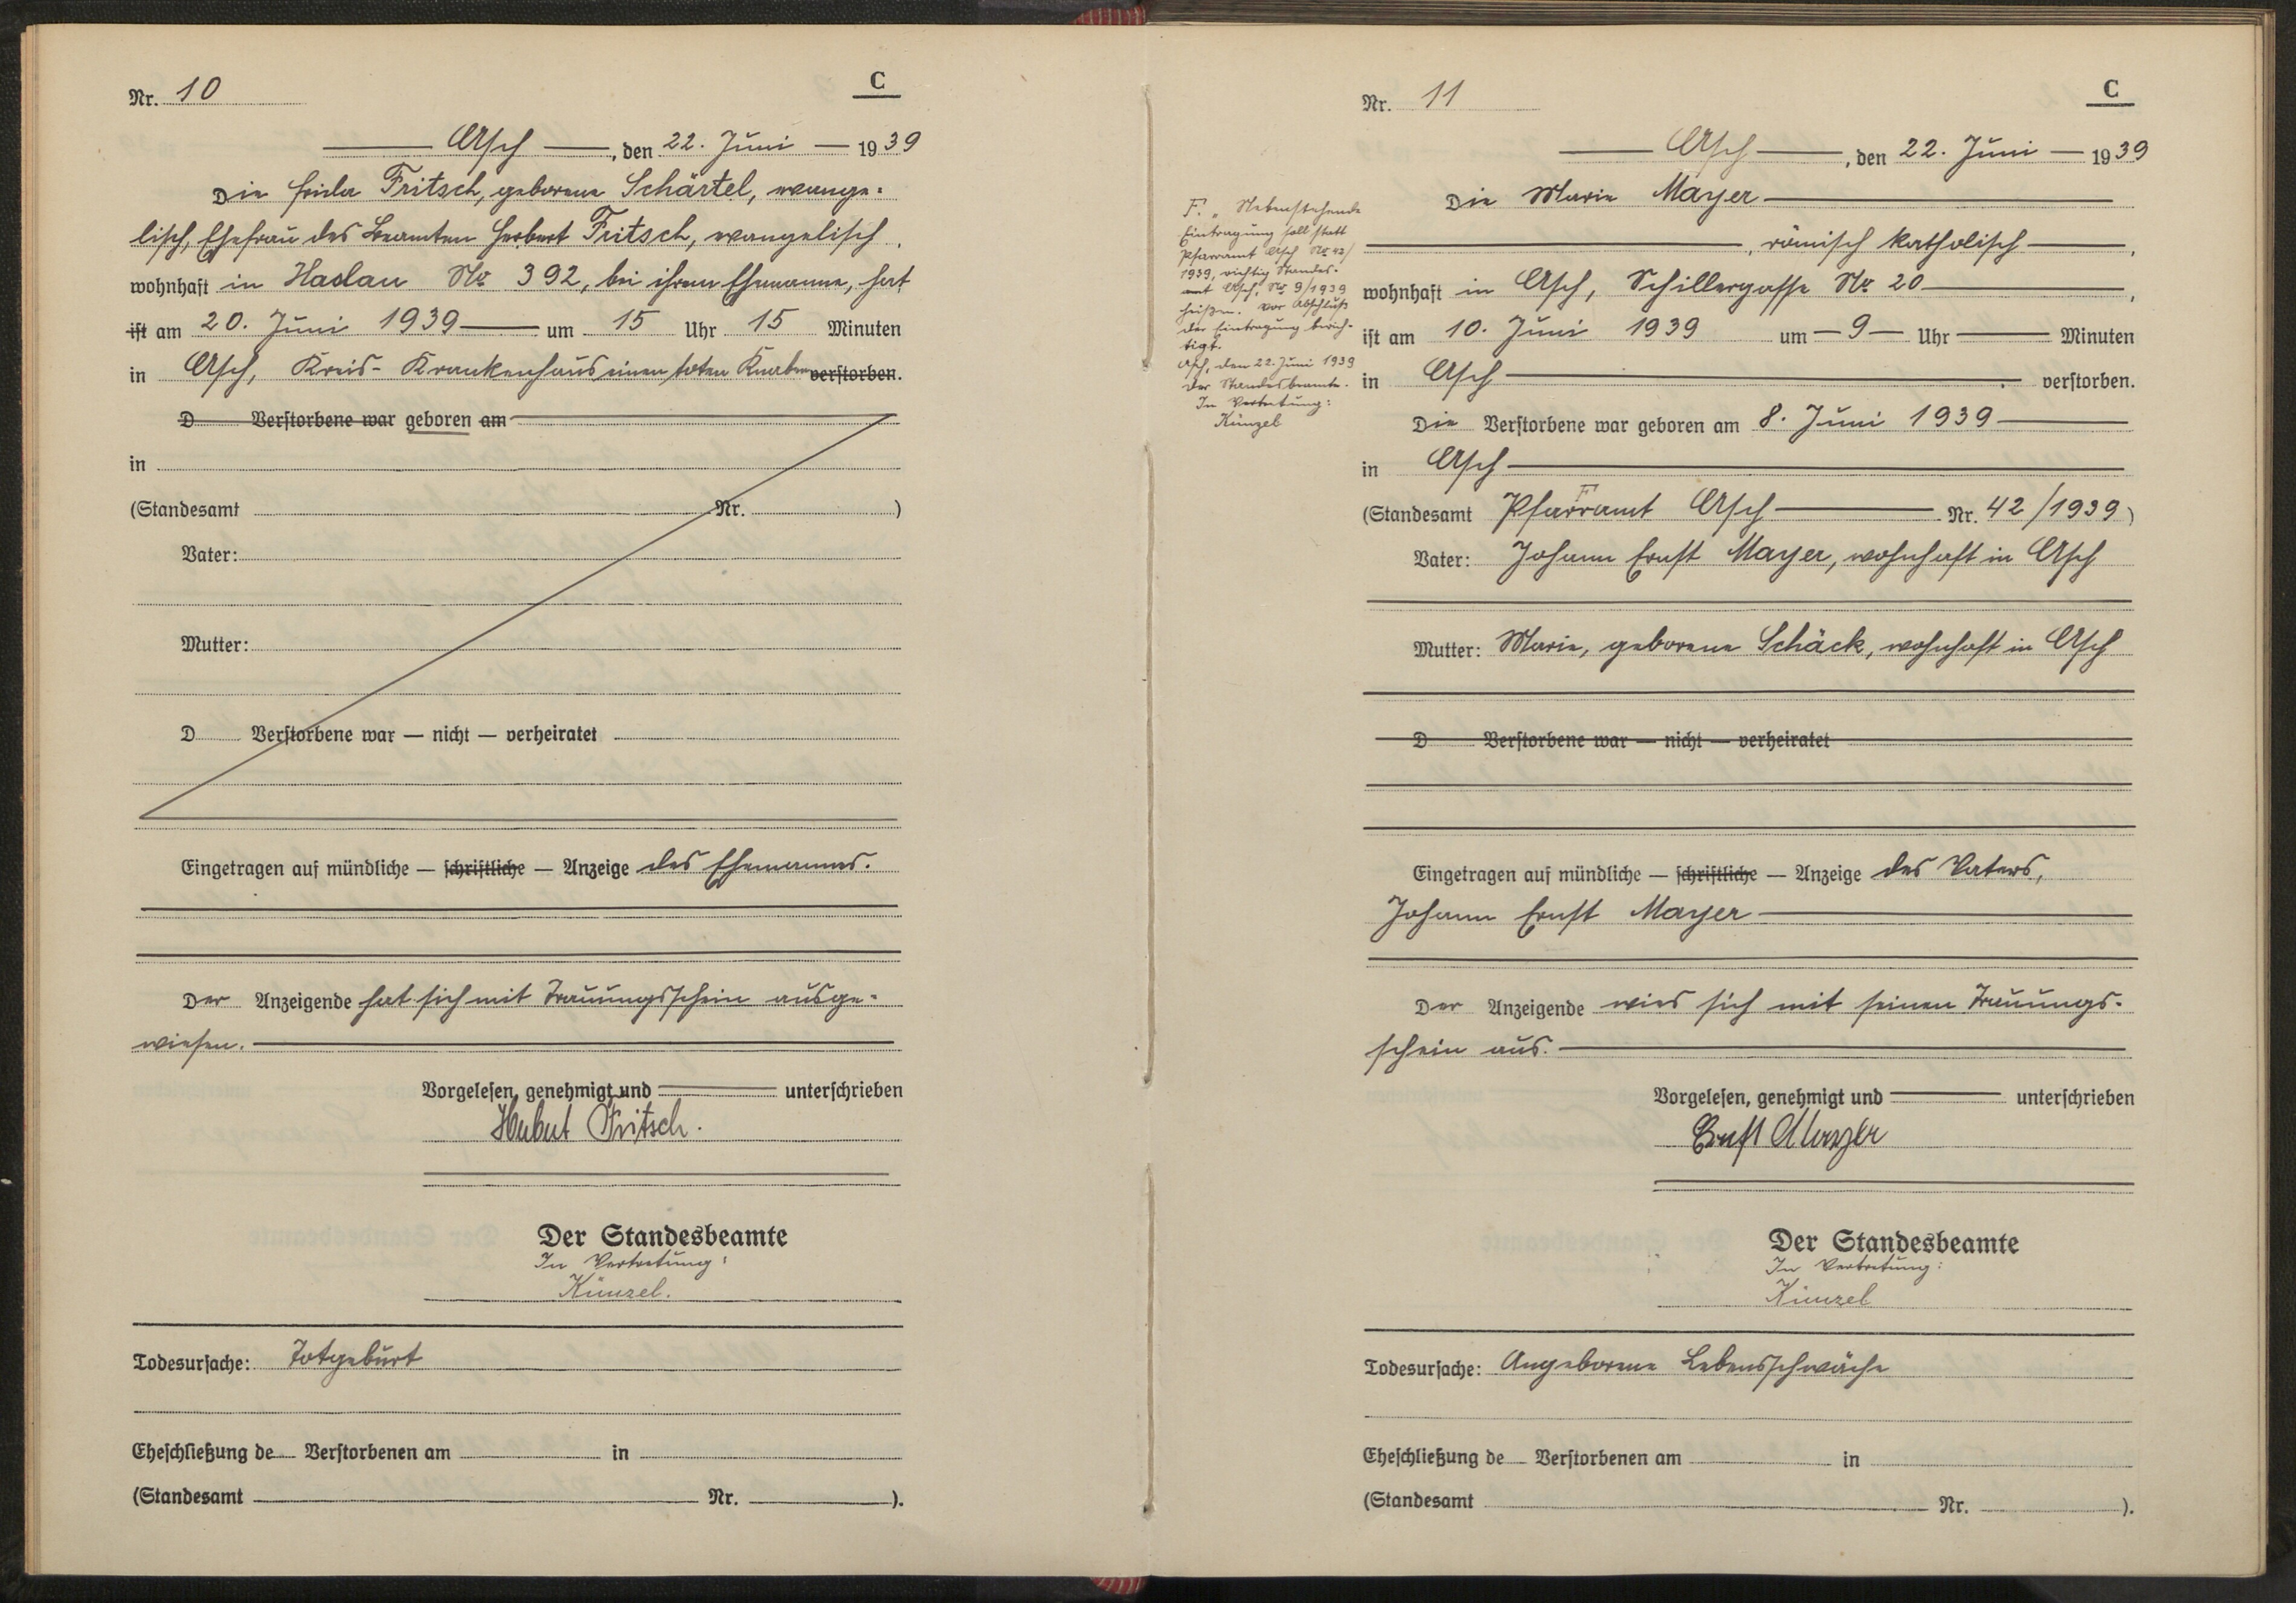 Nr. 10
C
Asch, den 22. Juni 1939
Die Frida Fritsch, geborene Schärtel, evange-
lisch, Ehefrau des Beamten Herbert Fritsch, evangelisch,
wohnhaft in Haslau Nr 392, bei ihrem Ehemanne, hat
ist am 20. Juni 1939 um 15 Uhr 15 Minuten
in Asch, Kreis-Krankenhaus einen toten Knaben verstorben.
D Verstorbene war geboren am
in
(Standesamt Nr. )
Vater:
Mutter:
D Verstorbene war — nicht — verheiratet
Eingetragen auf mündliche — schriftliche — Anzeige des Ehemannes.
Der Anzeigende hat sich mit Trauungsschein ausge-
wiesen.
Vorgelesen, genehmigt und unterschrieben
Herbert Fritsch.
Der Standesbeamte
In Vertretung:
Künzel.
Todesursache: Totgeburt
Eheschließung de Verstorbenen am in
(Standesamt Nr. ).
Nr. 11
C
Asch, den 22. Juni 1939
Die Marie Mayer
, römisch katholisch,
wohnhaft in Asch, Schillergasse Nr 20,
ist am 10. Juni 1939 um 9 Uhr Minuten
in Asch verstorben.
Die Verstorbene war geboren am 8. Juni 1939
in Asch
(Standesamt Pfarramt F Asch Nr. 42/1939)
Vater: Johann Ernst Mayer, wohnhaft in Asch
Mutter: Marie, geborene Schäck, wohnhaft in Asch
D Verstorbene war — nicht — verheiratet
Eingetragen auf mündliche — schriftliche — Anzeige des Vaters,
Johann Ernst Mayer
Der Anzeigende wies sich mit seinen Trauungs-
schein aus.
Vorgelesen, genehmigt und unterschrieben
Ernst Mayer
Der Standesbeamte
In Vertretung:
Künzel
Todesursache: Angeborene Lebensschwäche
Eheschließung de Verstorbenen am in
(Standesamt Nr. ).
F. Nebenstehende
Eintragung soll statt
Pfarramt Asch Nr 42/
1939, richtig Standes-
amt Asch, Nr 9/1939
heißen. Vor Abschluß
der Eintragung berich-
tigt.
Asch, den 22. Juni 1939
Der Standesbeamte.
In Vertretung:
Künzel